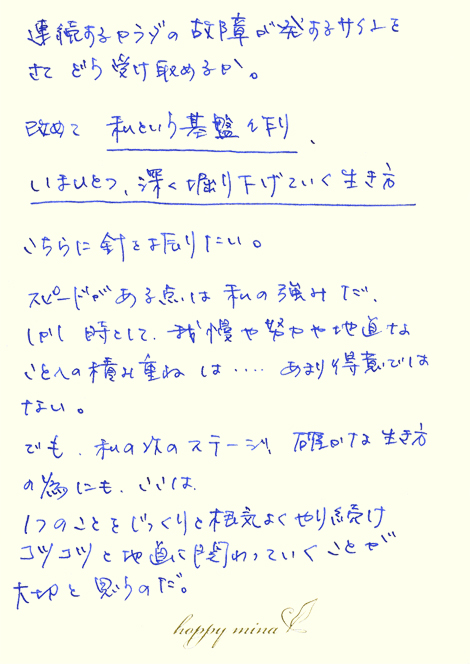 連続するカラダの故障が発するサインを
さて どう受け取めるか。
改めて 私という基盤作り、
いまひとつ、深く堀り下げていく生き方
こちらに針を振りたい。
スピードがある点は私の強みだ、
しかし時として、我慢や努力や地道な
ことへの積み重ねは‥‥あまり得意では
ない。
でも、私の次のステージ、確かな生き方
の為にも、ここは、
1つのことをじっくりと根気よくやり続け
コツコツと地道に関わっていくことが
大切と思うのだ。
happy mina